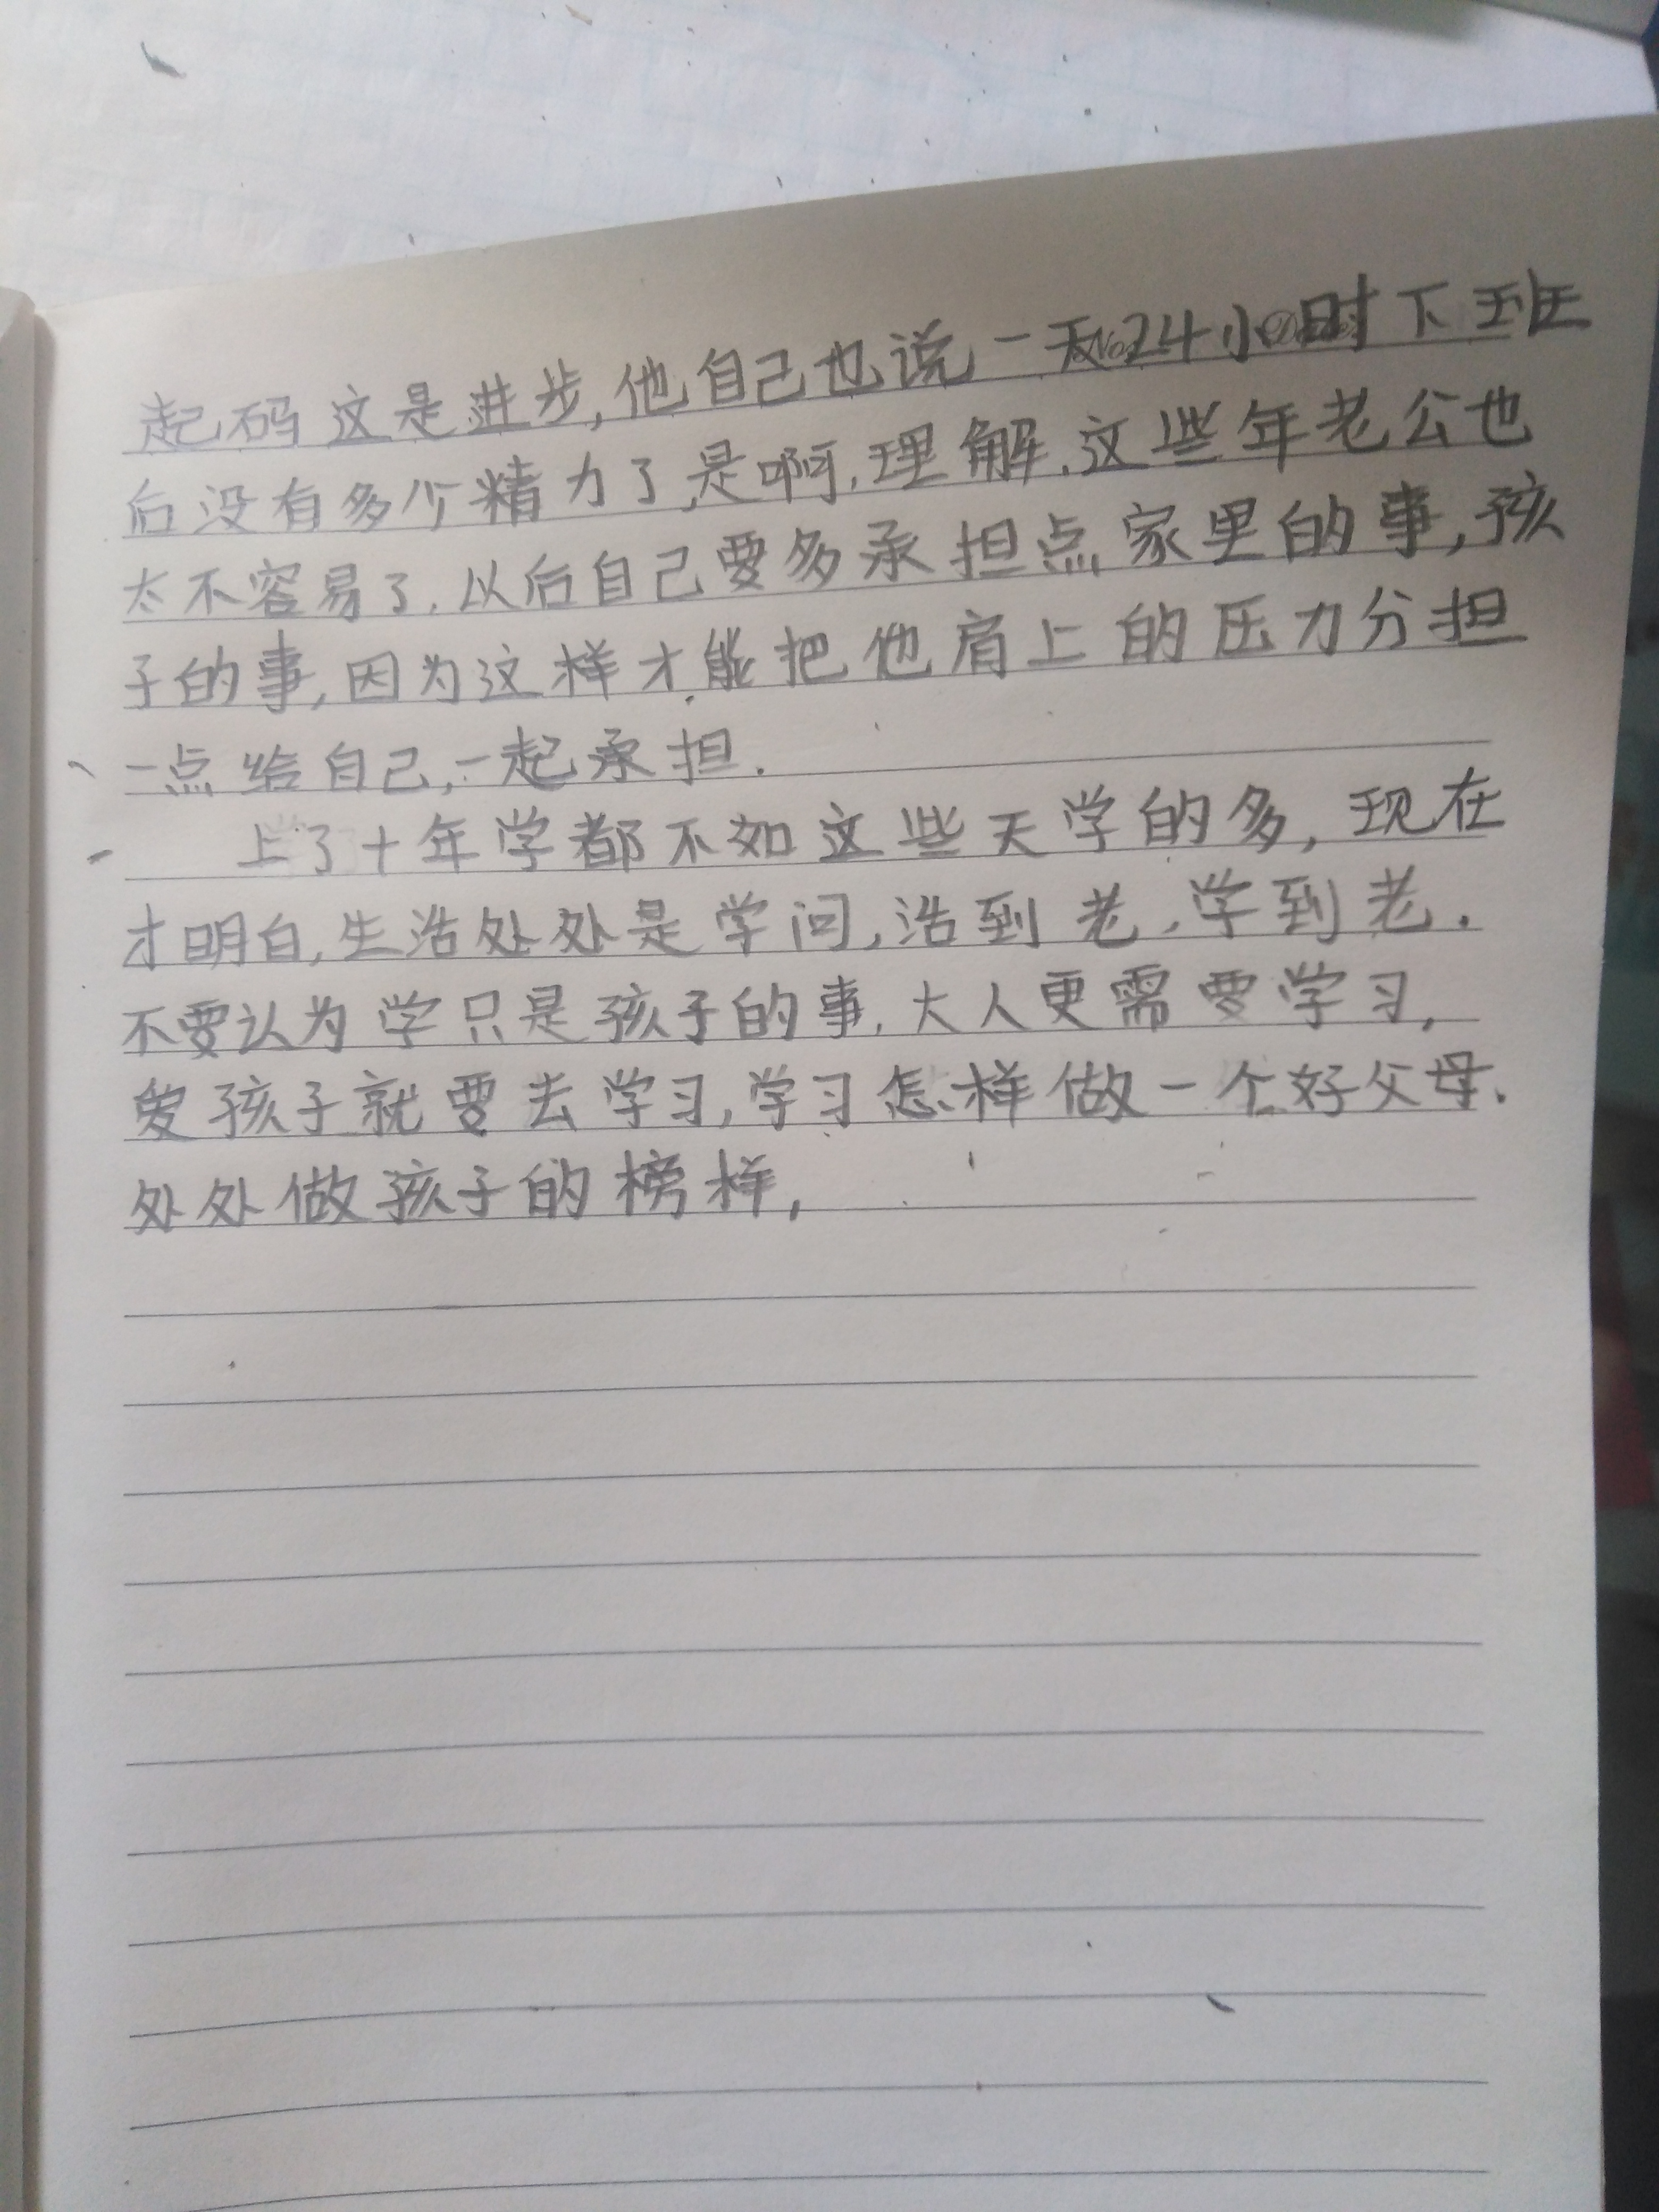 起码这是进步,他自己也说一天24小时下班
后没有多少精力了,是啊,理解.这些年老公也
太不容易了.以后自己要多承担点家里的事,孩
子的事,因为这样才能把他肩上的压力分担
一点给自己,一起承担.
上了十年学都不如这些天学的多,现在
才明白,生活处处是学问,活到老,学到老.
不要认为学只是孩子的事,大人更需要学习,
爱孩子就要去学习,学习怎样做一个好父母.
处处做孩子的榜样,